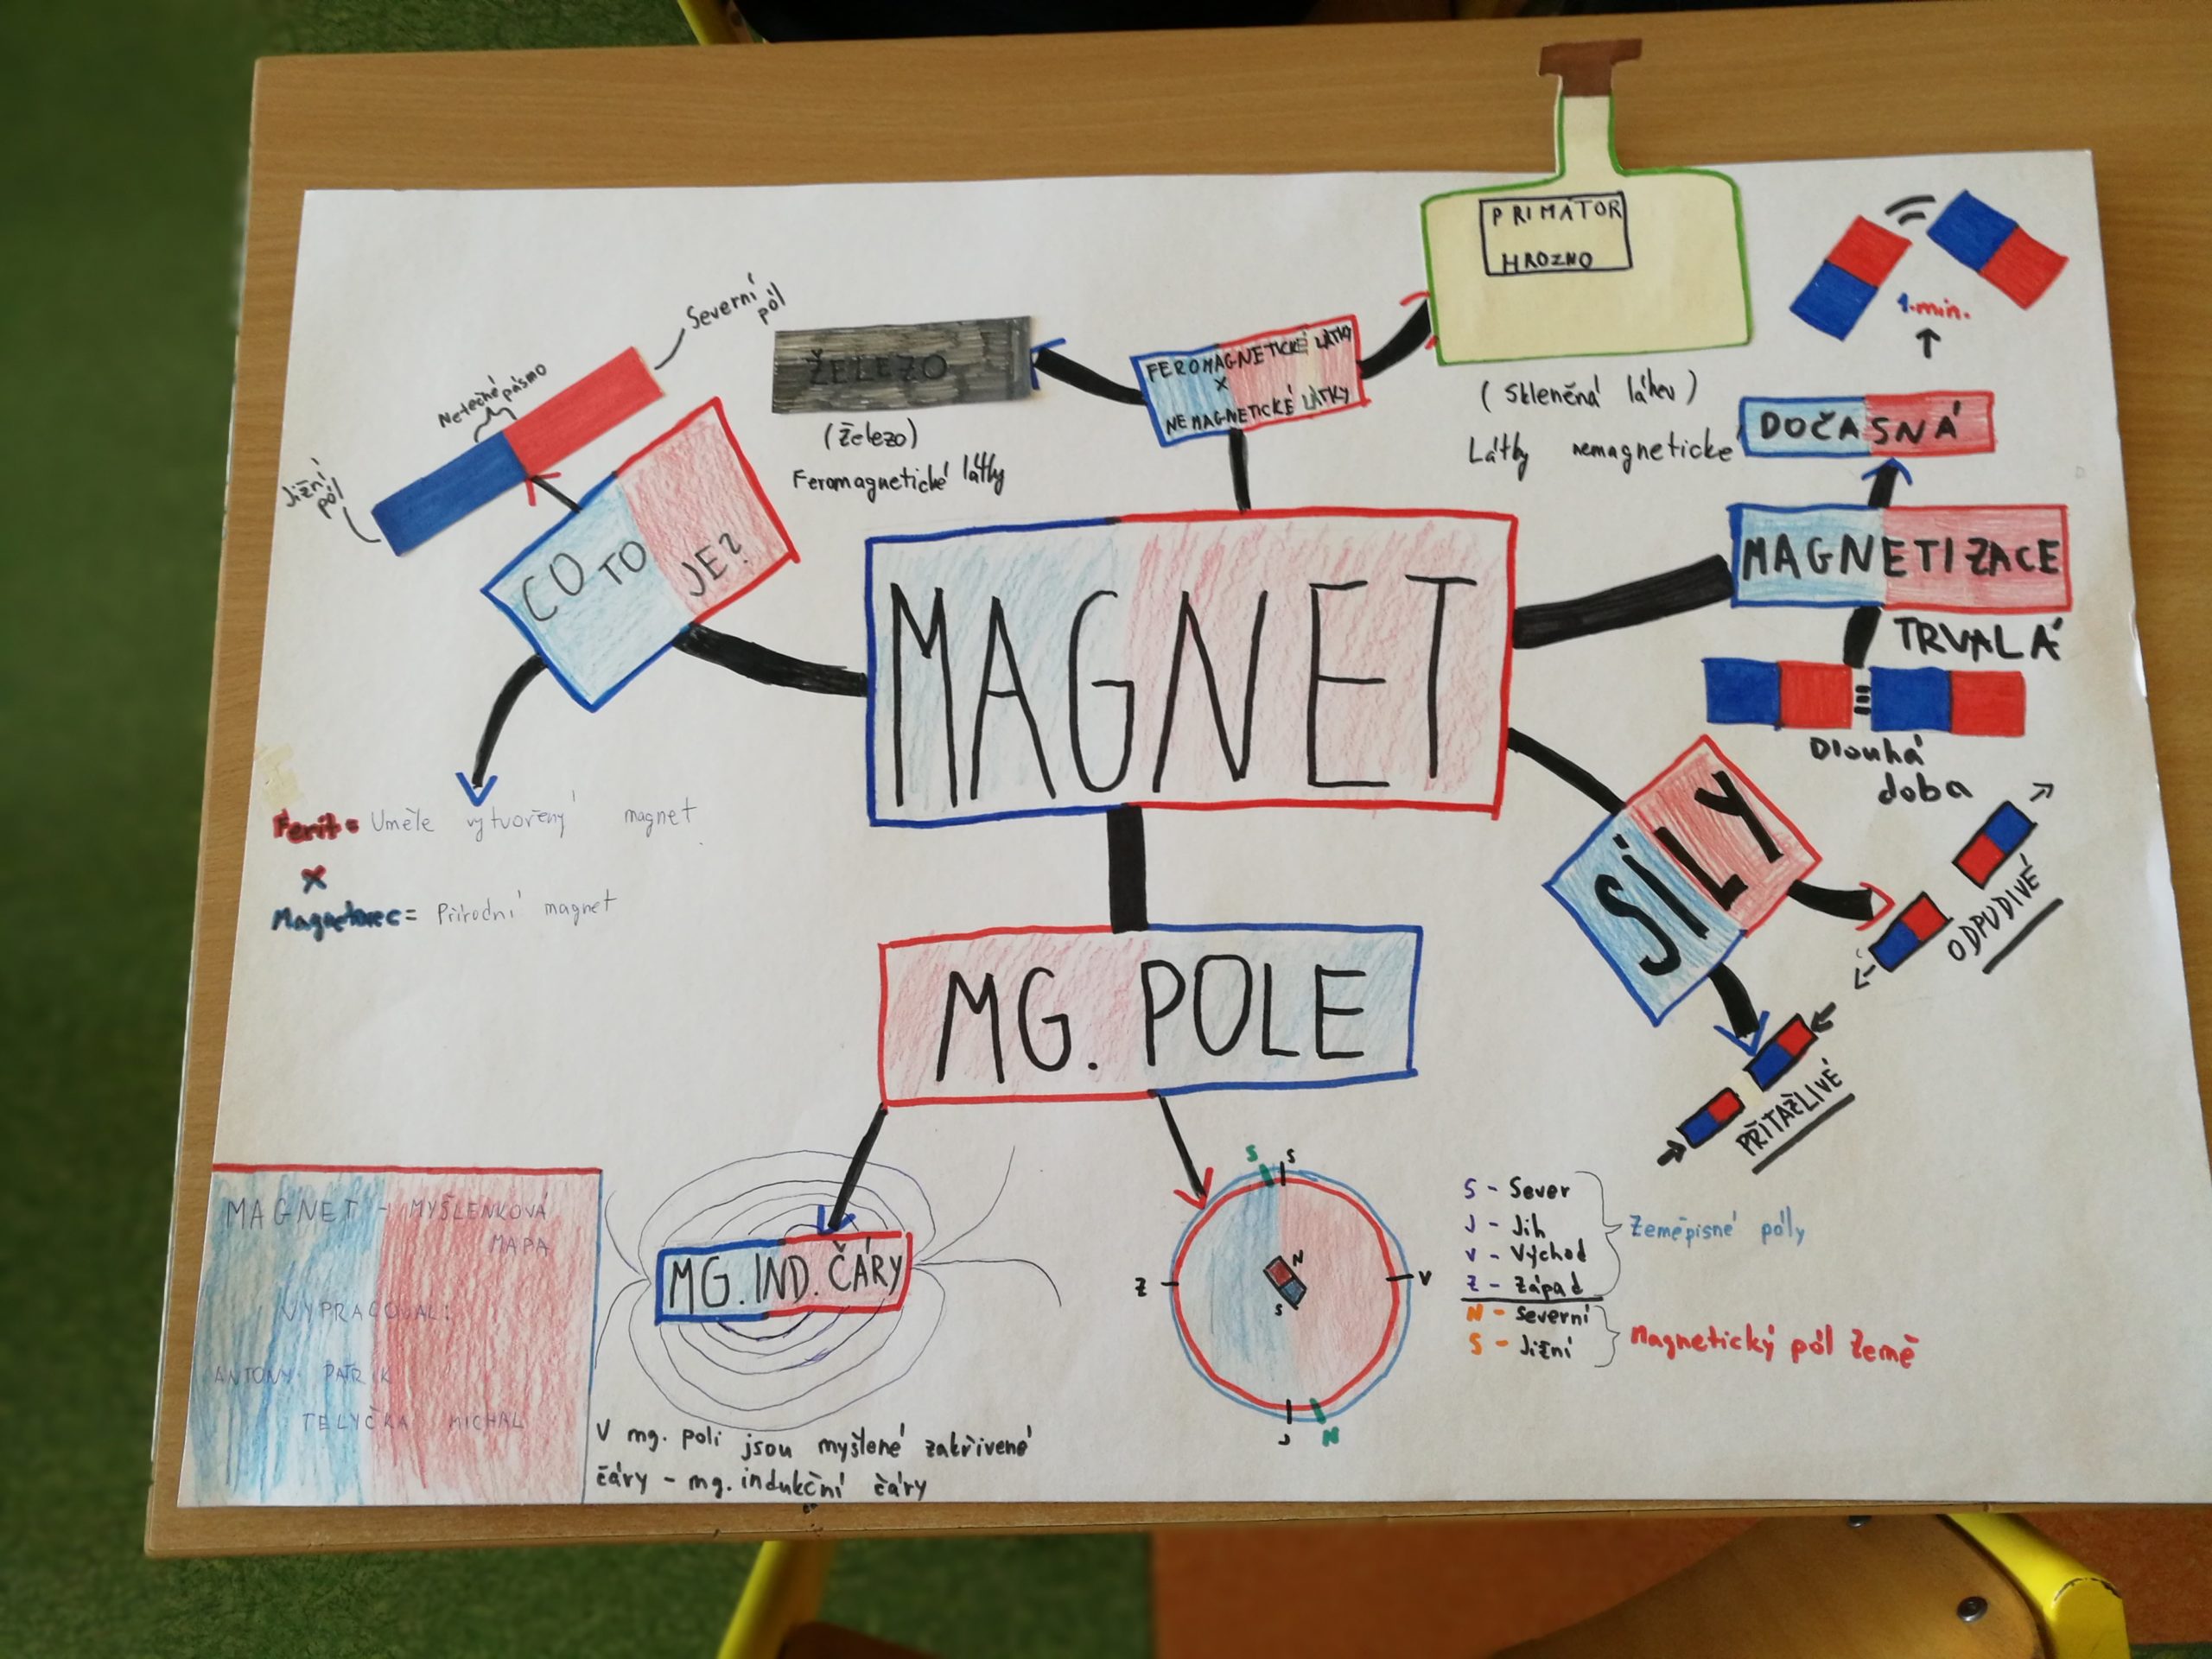 PRIMÁTOR
HROZNO
1.min.
Severní
pól
Netečné pásmo
Jižní
pól
ŽELEZO
(Železo)
Feromagnetické látky
FEROMAGNETICKÉ LÁTKY
X
NEMAGNETICKÉ LÁTKY
(Skleněná láhev)
Látky nemagneticke
DOČASNÁ
MAGNETIZACE
TRVALÁ
Dlouhá
doba
CO TO JE?
MAGNET
Ferit = Uměle vytvořený magnet
X
Magnetovec = Přírodní magnet
SÍLY
ODPUDIVÉ
PŘITAŽLIVÉ
MG. POLE
MG. IND. ČÁRY
V mg. poli jsou myšlené zakřivené
čáry - mg. indukční čáry
S S
Z V
N
S
J N
S - Sever
J - Jih
V - Východ
Z - Západ
Zeměpisné póly
N - Severní
S - Jižní
Magnetický pól Země
MAGNET - MYŠLENKOVÁ
MAPA
VYPRACOVAL:
ANTONY PATRIK
TELYČKA MICHAL